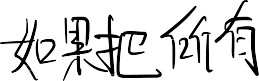 如果把所有